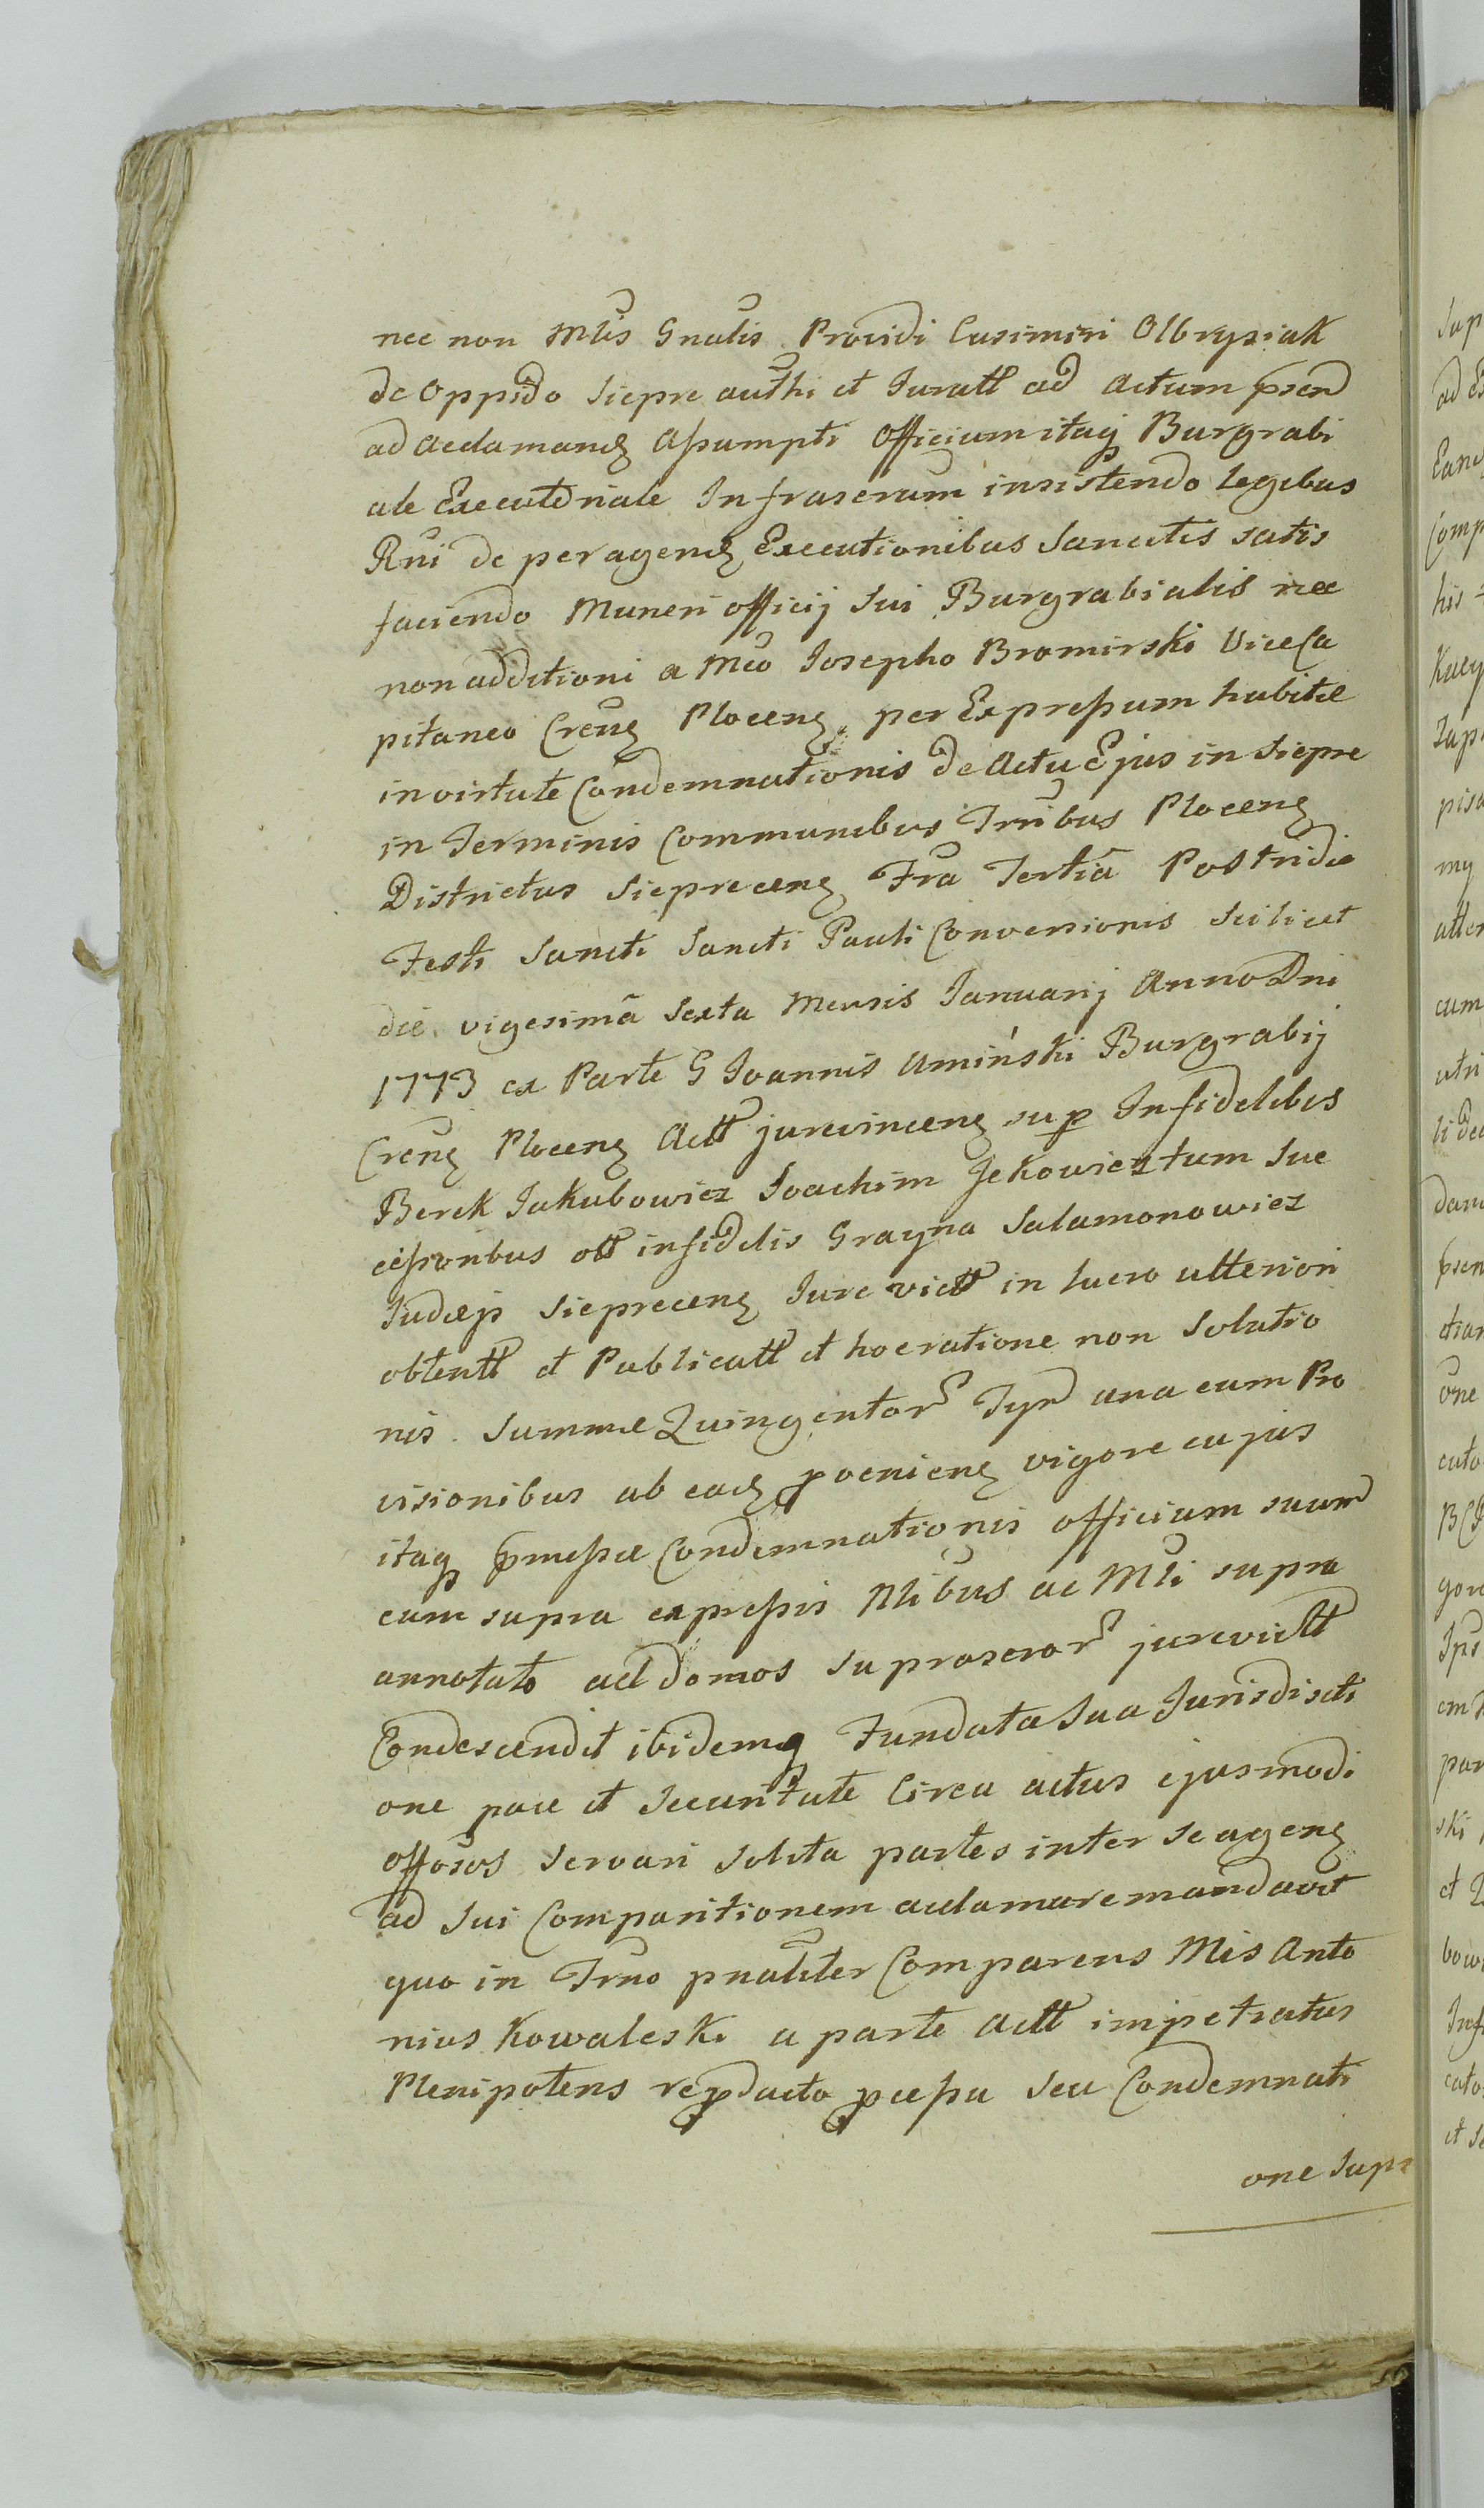 nec non Mlis Gnalis Providi Casimiri Olbrysiak
de Oppido Siepre authi et Juratt ad actum psen
ad acclamand Assumpti Officium itaq Burgrabi
ale Executoriale Infrascrum insistendo legibus
Rni de peragend Executionibus Sancitis satis
faciendo Muneri officij sui Burgrabialis nec
non additioni a Mco Josepho Bromirski ViceCa
pitaneo Crens Plocens per Expressum habitæ
in virtute Condemnationis de Actu Ejus in Siepre
in Terminis Communibus Trribus Plocens
Districtus Sieprecens Fra Tertiâ Postridie
Festi Sancti Sancti Pauli Conversionis Scilicet
die vigesimâ Sexta Mensis Januarij Anno Dni
1773 ex Parte G Joannis Amiński Burgrabij
Crens Plocens Actt jurevincens sup Infidelibus
Berek Jakubowicz Joachim Jekowicz tum Suc
cessoribus olt infidelis Grayna Salamonowicz
Judæjs Sieprecens Jure victt in lucro ulteriori
obtentt et Publicatt et hoc ratione non Solutio
nis Summæ Quingentor Tyn una cum Pro
visionibus ab ead proeniens vigore cujus
itaq pmissæ Condemnationis officium suum
cum supra expressis Nlibus ac Mli supra
annotato ad domos suprascror jurevictt
Condescendit ibidemq Fundata Sua Jurisdicti
one pace et Securitate Circa actus ejusmodi
offosos servari solita partes inter se agens
ad sui Comparitionem acclamare mandavit
quo in Trno pnaliter Comparens Mis Anto
nius Kowaleski a parte Actt impetratus
Plenipotens repducto pcessu seu Condemnati
one Supr